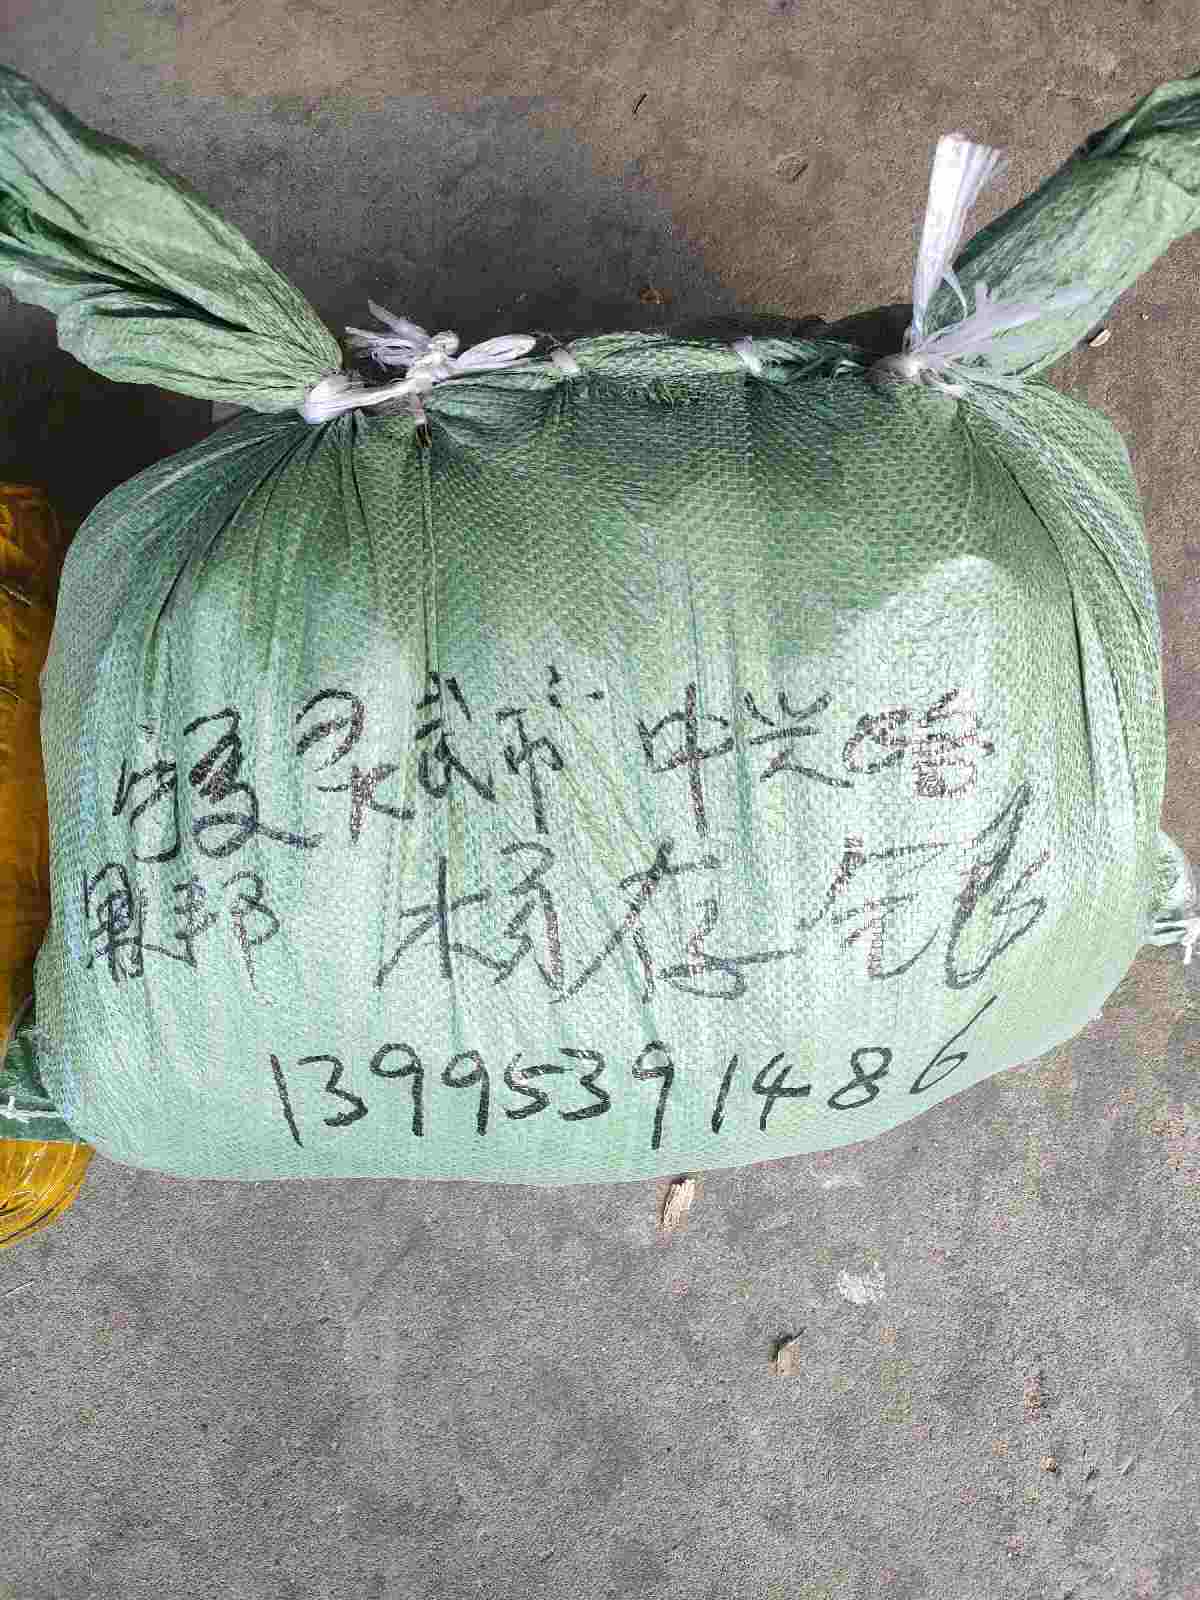 宁夏灵武市中兴
邦 杨存
13995391486